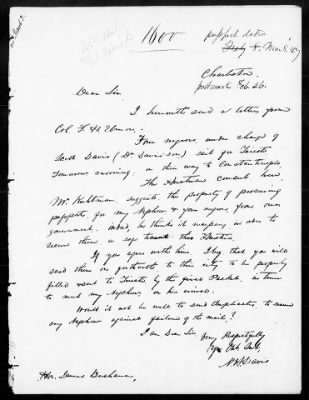 1600
passport dated
Mar 8. 47
Charleston,
postmark Feb 26.
Dear Sir
I herewith send a letter from
Col F. H Elmore. -
Four negroes, under charge of
Jacob Davis (Dr. Davis' son) sail for Trieste
tomorrow morning, on their way to Constantinople
The Austrian consul here,
Mr. suggests, the propriety of procuring
passports, for my Nephew & four negroes, from our
government. indeed, he thinks it necessary in order to
secure them a safe transit thro Austria.
If you agree with him, I beg that you will
send them on forthwith to this city to be properly
filled & sent to Trieste, by the first Packet, in time
to meet my nephew, on his arrival.
Would it not be well to send duplicates, to secure
my Nephew against failure of the mail?
I am Dear Sir,
Very Respectfully
Your Obt Servt,
Davis
Hon. James Buchanan,